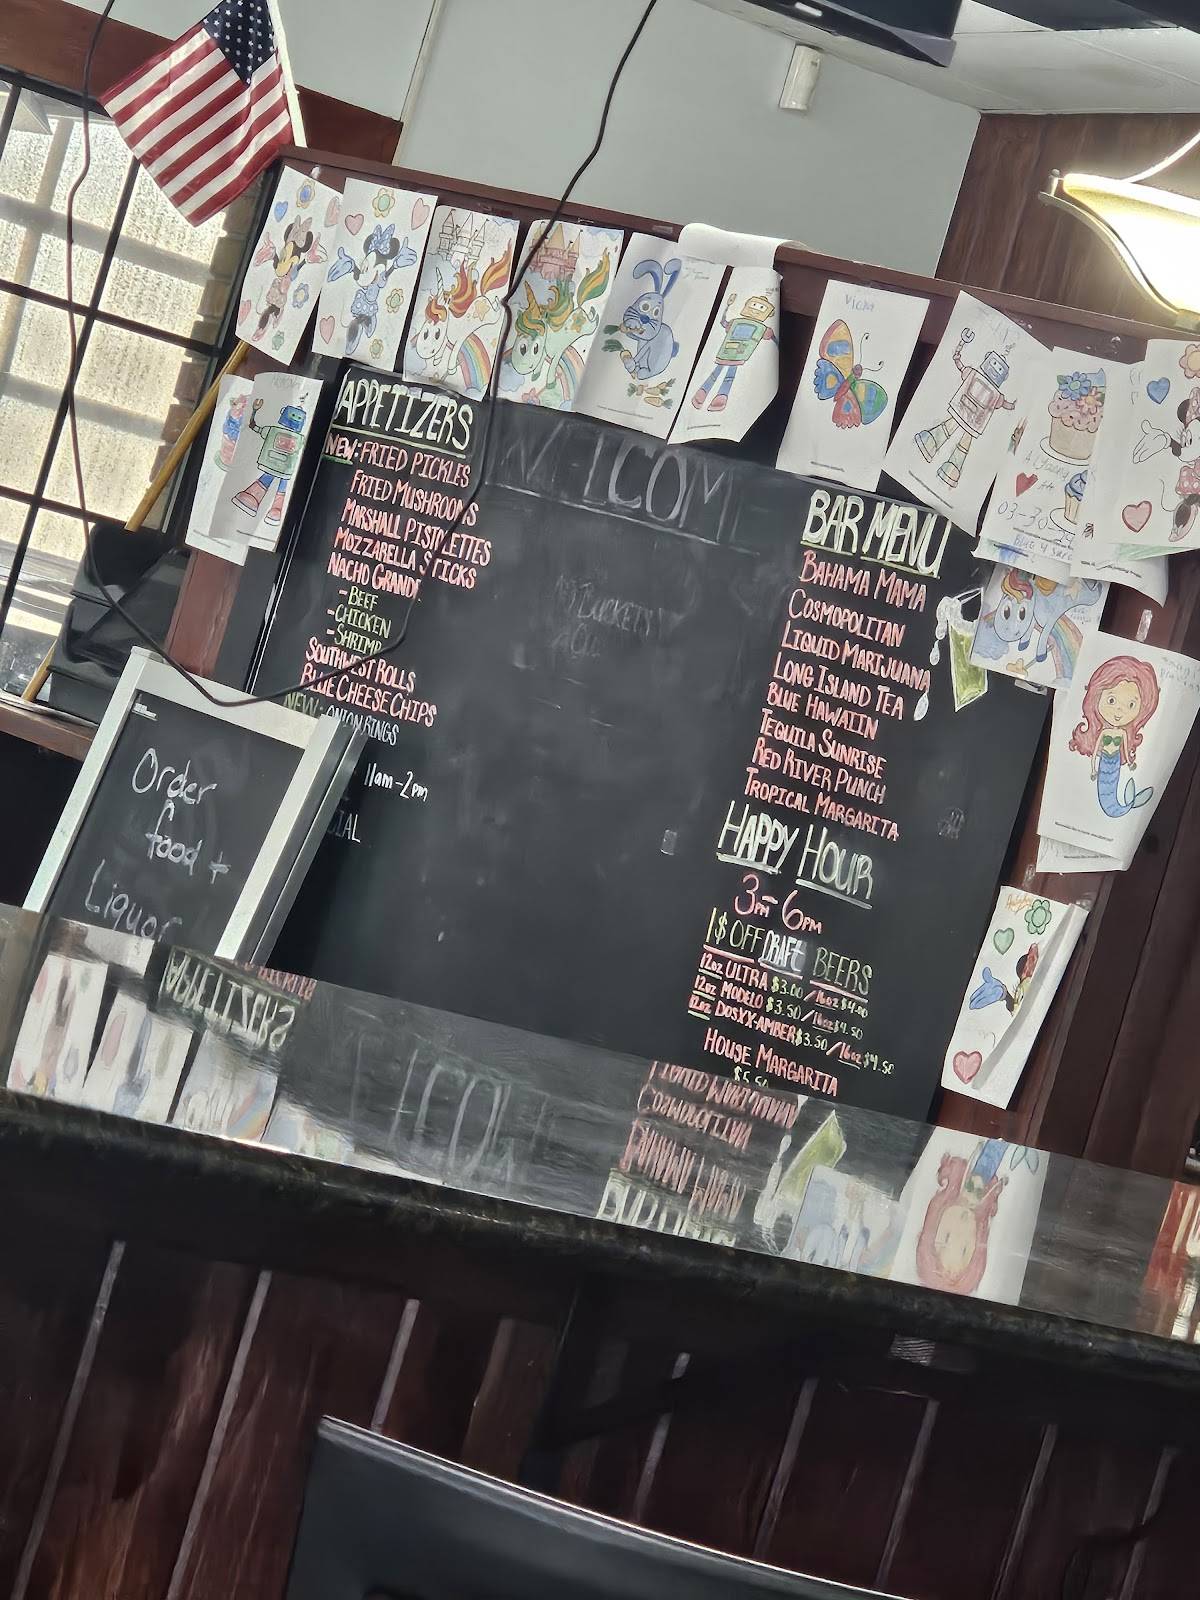 WELCOM
APPETIZERS
NEW: FRIED PICKLES
FRIED MUSHROOMS
MARSHALL PISTOLETTES
MOZZARELLA STICKS
NACHO GRANDE
-BEEF
-CHICKEN
-SHRIMP
SOUTHWEST ROLLS
BLUE CHEESE CHIPS
NEW: ONION RINGS
11am-2pm
IAL
Order
food +
Liquor
BAR MENU
BAHAMA MAMA
COSMOPOLITAN
LIQUID MARIJUANA
LONG ISLAND TEA
BLUE HAWAIIN
TEQUILA SUNRISE
RED RIVER PUNCH
TROPICAL MARGARITA
HAPPY HOUR
3PM-6PM
1$ OFF DRAFT BEERS
12oz ULTRA $3.00/16oz $4.00
12oz MODELO $3.50/16oz $4.50
12oz DOSXX-AMBER $3.50/16oz $4.50
HOUSE MARGARITA
$5.50